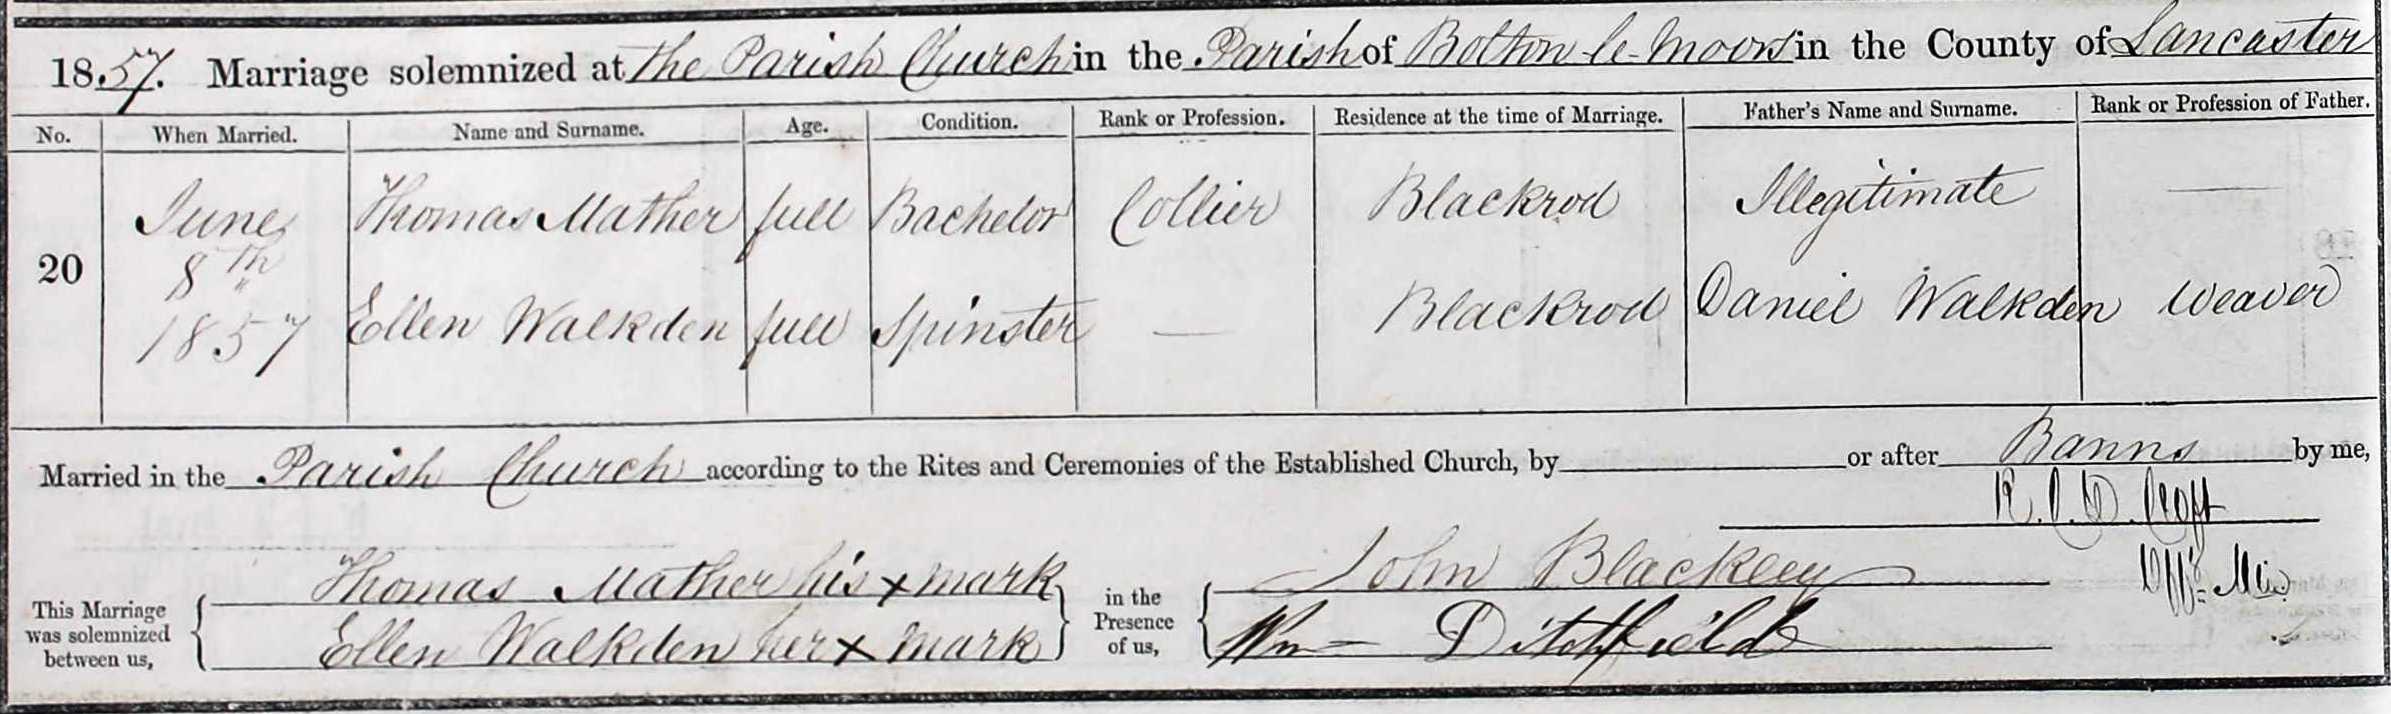 1857. Marriage solemnized at the Parish Church in the Parish of Bolton-le-Moors in the County of Lancaster
No. When Married. Name and Surname. Age. Condition. Rank or Profession. Residence at the time of Marriage. Father's Name and Surname. Rank or Profession of Father.
20 June 8th 1857 Thomas Mather full Bachelor Collier Blackrod Illegitimate —
Ellen Walkden full Spinster — Blackrod Daniel Walkden Weaver
Married in the Parish Church according to the Rites and Ceremonies of the Established Church, by or after Banns by me,
R. C. D. Croft
Offg. Min.
This Marriage was solemnized between us, Thomas Mather his x mark in the Presence of us, John Blackley
Ellen Walkden her x mark Wm Ditchfield